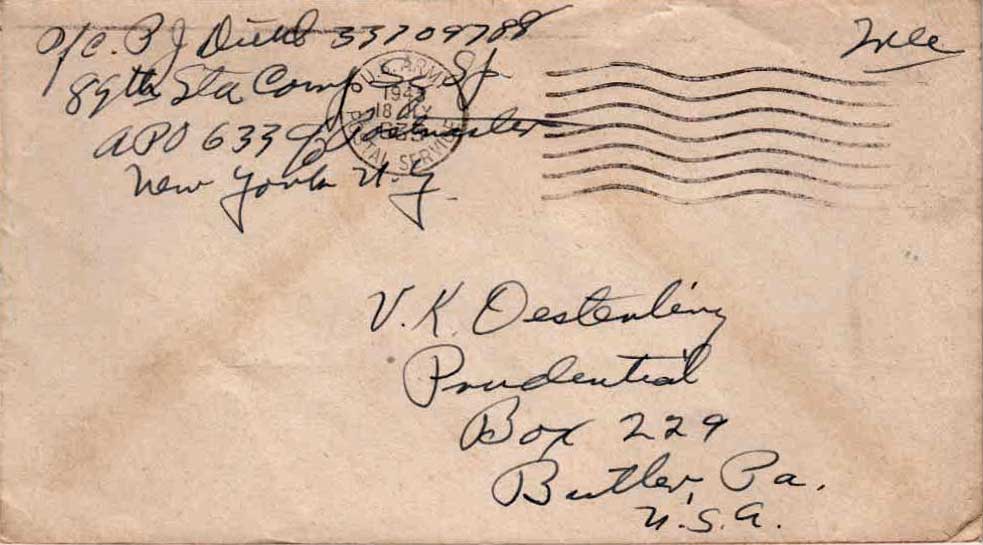 Pfc. P J 33709788
89th Sta Comp Sv. Sq.
APO 633 c/o Postmaster
New York N.Y.
Free
U.S. ARMY
194
18
POSTAL SERVICE
V. K. Oesterling
Prudential
Box 229
Butler, Pa.
U.S.A.